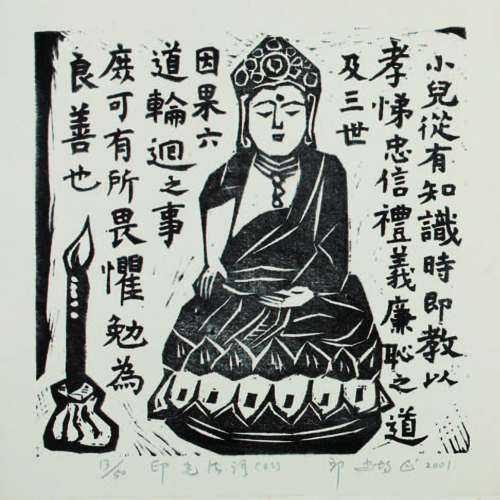 小兒從有知識時即教以
孝悌忠信禮義廉恥之道
及三世
因果六
道輪迴之事
庶可有所畏懼勉為
良善也
13/50 印光法語 2001